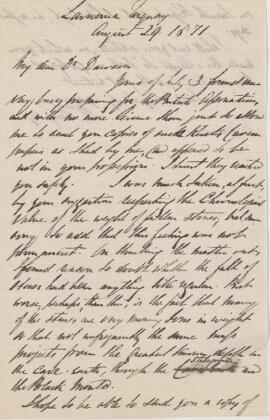 Lamorna Torquay
August 29 1871
My dear Dr Dawson
Yours of July 3 found me
very busy preparing for the British Association,
and with no more leisure than just to allow
me to send you copies of such Kents Cavern
papers as I had by me, and appeared to be
not in your possession. I trust they reached
you safely. I was much taken, at first,
by your suggestion respecting the Chronological
value of the weight of fallen stones, but am
sorry to add that this feeling was not
permanent. On thinking the matter out I
found reason to doubt whether the fall of
stones had been anything like regular. But
worse, perhaps, than this, is the fact that many
of the stones are very many tons in weight
so that not unfrequently the same
projects from the greatest depth in
the Cave-earth, through the
and the Black Mould.
I hope to be able to send you a copy of